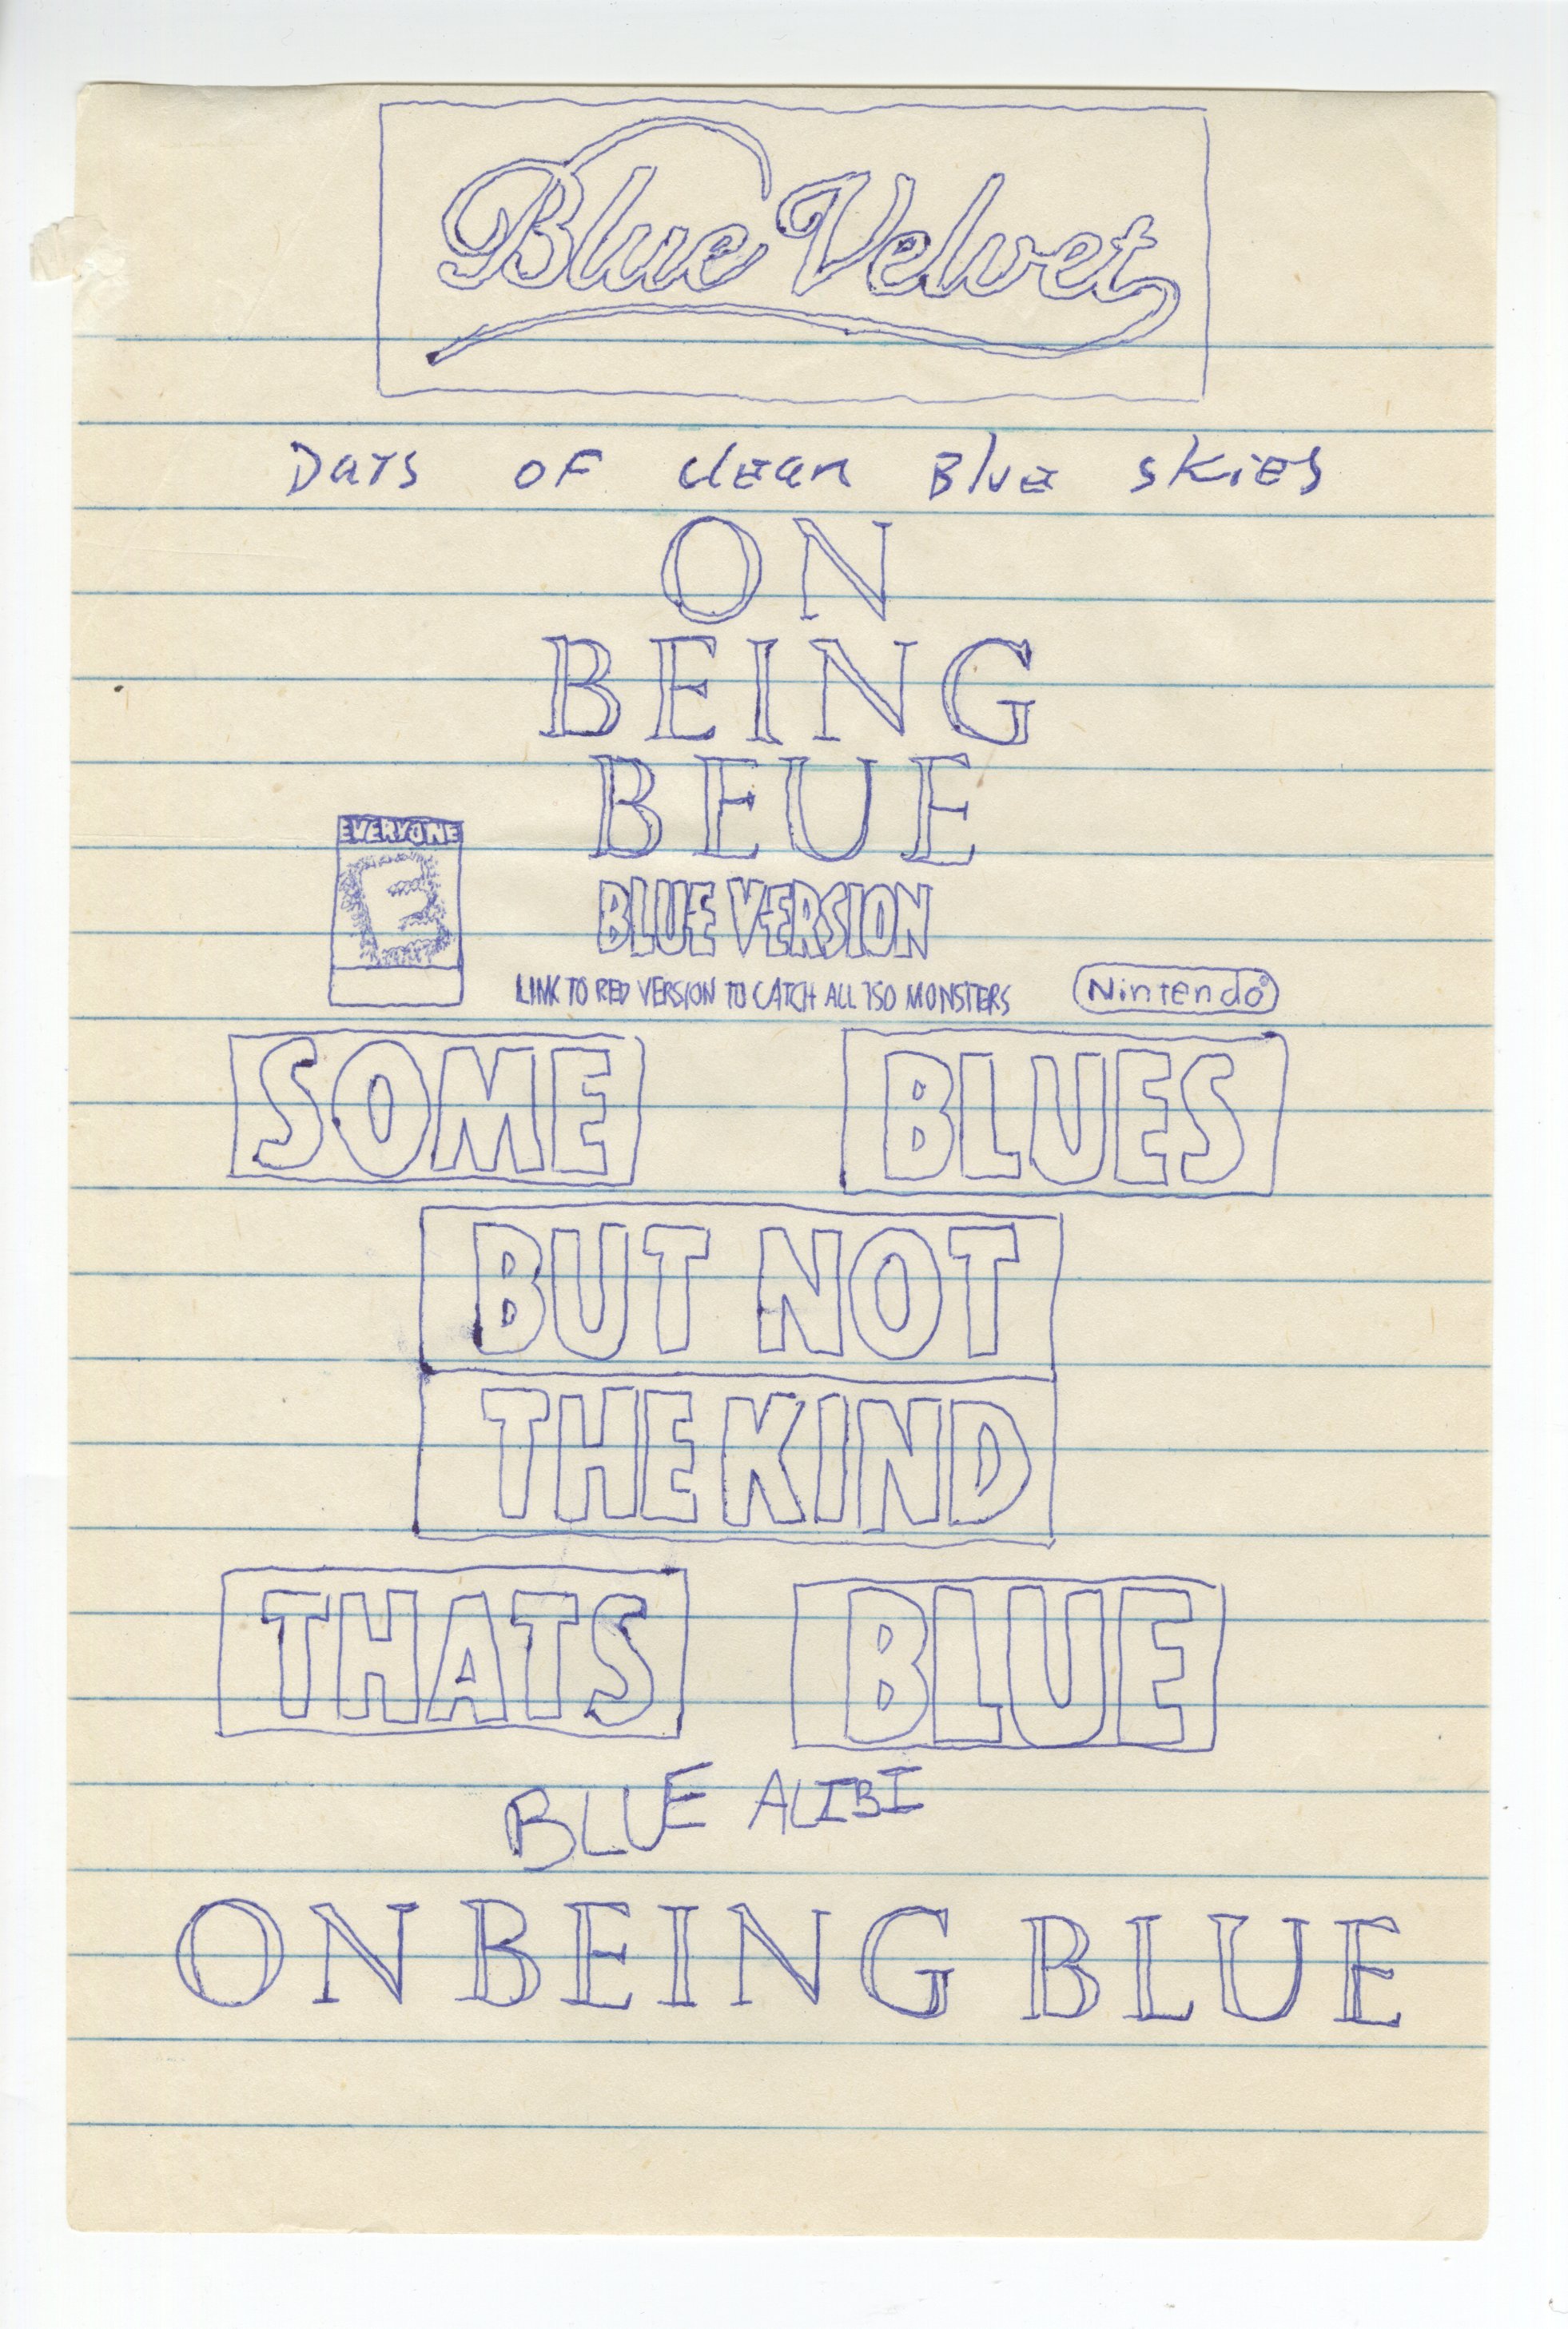 Blue Velvet
Days of clean Blue skies
ON
BEING
BEUE
EVERYONE
E
BLUE VERSION
LINK TO RED VERSION TO CATCH ALL 150 MONSTERS
Nintendo®
SOME BLUES
BUT NOT
THE KIND
THATS BLUE
BLUE ALIBI
ON BEING BLUE